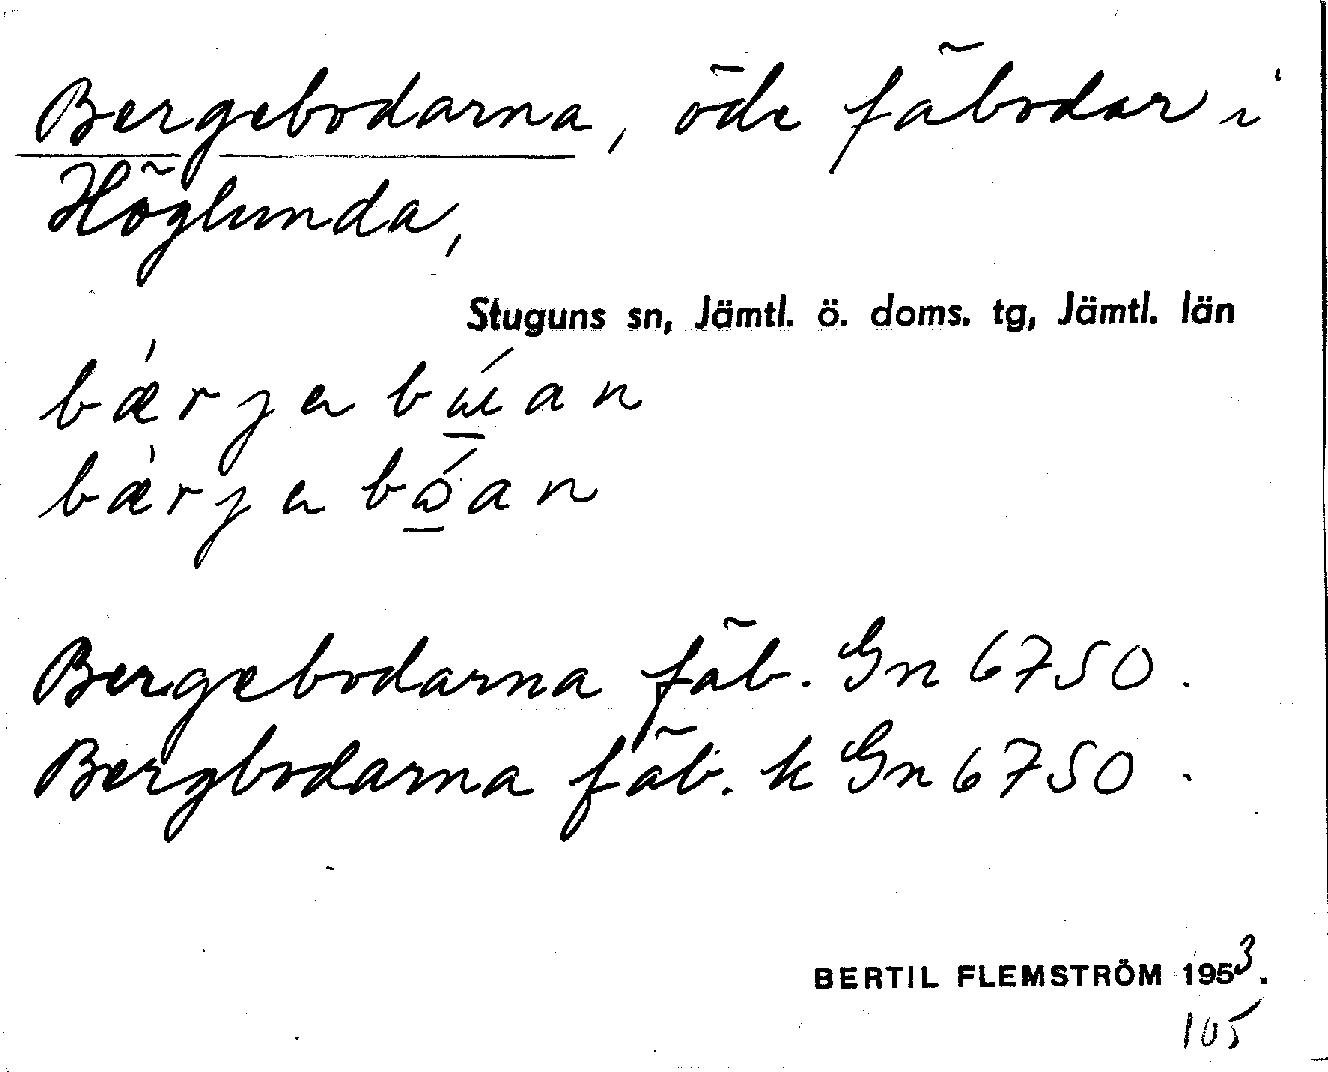 Bergebodarna, öde fäbodar i
Höglunda,
Stuguns sn, Jämtl. ö. doms. tg, Jämtl. län
Bergebodarna fäb. Gn 6750.
Bergbodarna fäb. k Gn 6750.
BERTIL FLEMSTRÖM 1953.
105